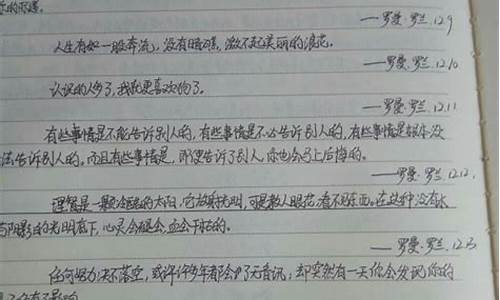 ——罗曼·罗兰.12.9
人生有如一股奔流，没有暗礁，激不起美丽的浪花。
——罗曼·罗兰.12.10
认识的人多了，我就更喜欢狗了。
——罗曼·罗兰.12.11
有些事情是不能告诉别人的，有些事情是不必告诉别人的，有些事情是根本没
法告诉别人的，而且有些事情是，即使告诉了别人，你也会马上后悔的。
——罗曼·罗兰.12.12.
理智是一颗冷酷的太阳，它放射光明，可是教人眼花，看不见东西。在这种没有水
与阴影的光明底下，心灵会褪色，血会干枯的。
——罗曼·罗兰.12.13
任何努力决不落空，或许许多年都会杳无音讯；却突然有一天你会发现你的